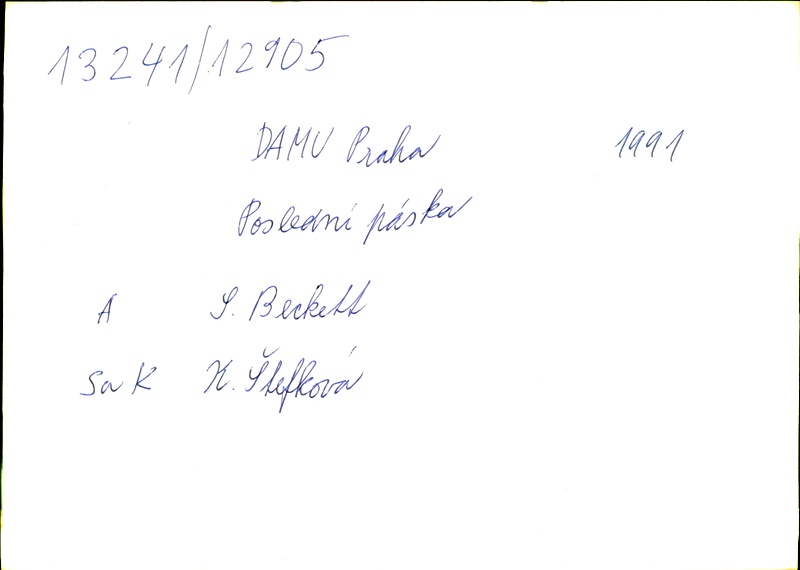 13241/12905
DAMU Praha 1991
Poslední páska
A S. Beckett
SaK K. Štefková